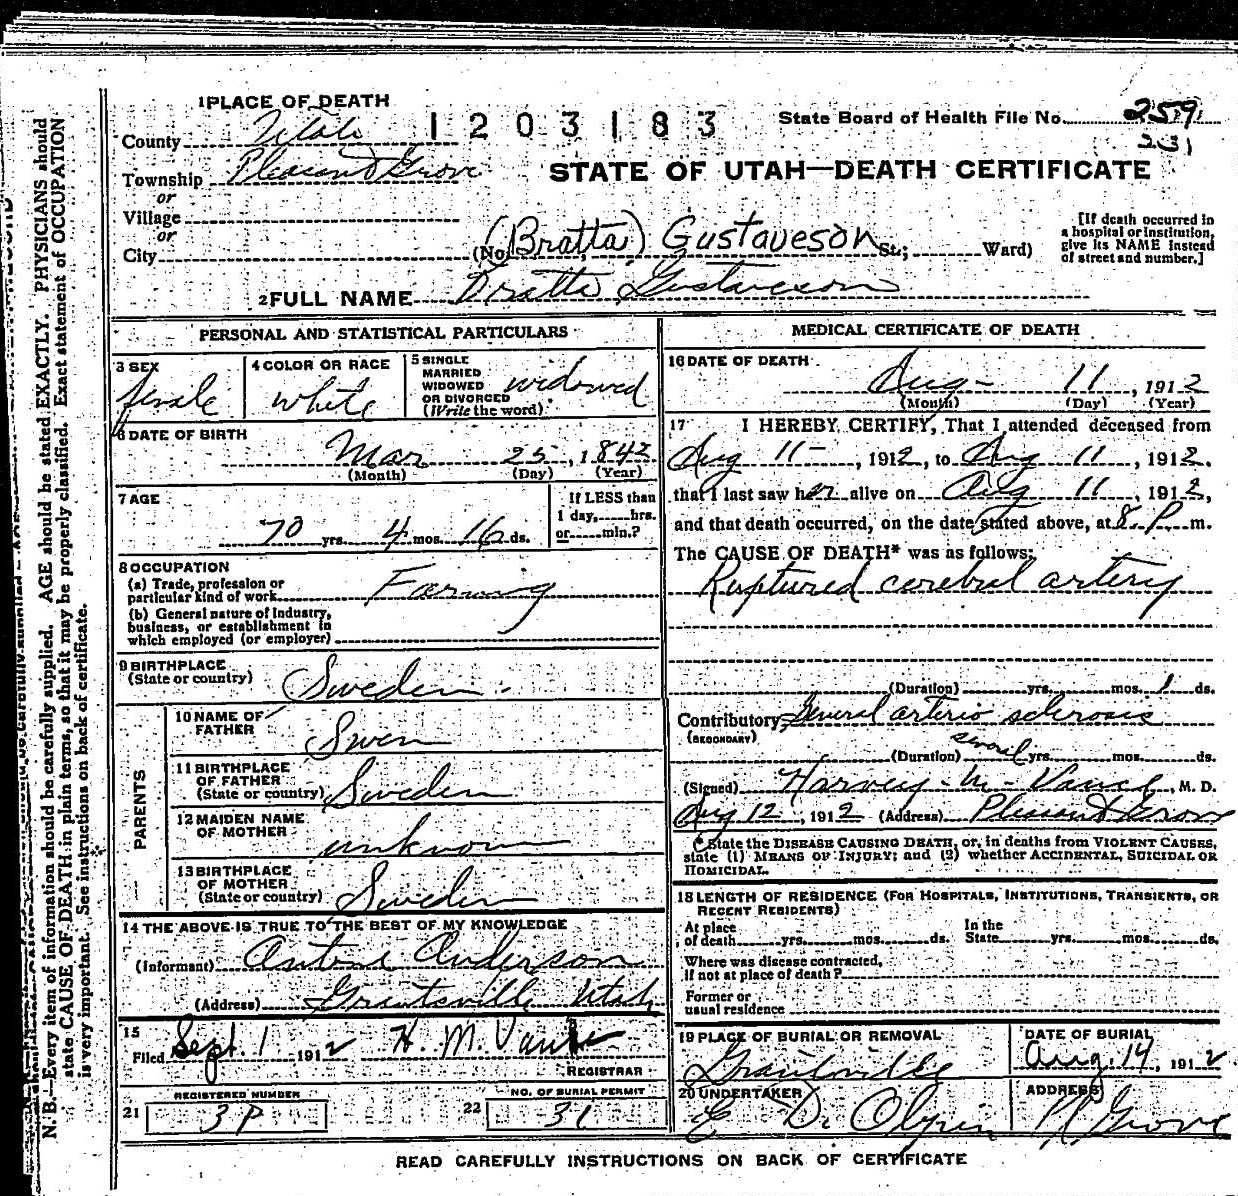 1 PLACE OF DEATH
County Utah
1203183
State Board of Health File No. 259
231
Township Pleasant Grove
or
Village
or
City
STATE OF UTAH—DEATH CERTIFICATE
(No. (Bratta) Gustaveson St.; Ward)
[If death occurred in a hospital or institution, give its NAME instead of street and number.]
2 FULL NAME Bratta Gustaveson
PERSONAL AND STATISTICAL PARTICULARS
3 SEX female
4 COLOR OR RACE white
5 SINGLE MARRIED WIDOWED OR DIVORCED (Write the word) widowed
6 DATE OF BIRTH
Mar 25, 1842
(Month) (Day) (Year)
7 AGE
70 yrs. 4 mos. 16 ds.
If LESS than 1 day, hrs. or min.?
8 OCCUPATION
(a) Trade, profession or particular kind of work Farming
(b) General nature of industry, business, or establishment in which employed (or employer)
9 BIRTHPLACE (State or country) Sweden
PARENTS
10 NAME OF FATHER Swen
11 BIRTHPLACE OF FATHER (State or country) Sweden
12 MAIDEN NAME OF MOTHER unknown
13 BIRTHPLACE OF MOTHER (State or country) Sweden
14 THE ABOVE IS TRUE TO THE BEST OF MY KNOWLEDGE
(Informant) Antone Anderson
(Address) Grantsville Utah
15
Filed Sept. 1 1912 H. M. Vance
REGISTRAR
REGISTERED NUMBER
21
NO. OF BURIAL PERMIT
22 31
MEDICAL CERTIFICATE OF DEATH
16 DATE OF DEATH
Aug- 11, 1912
(Month) (Day) (Year)
17 I HEREBY CERTIFY, That I attended deceased from
Aug 11-, 1912, to Aug 11, 1912,
that I last saw her alive on Aug 11, 1912,
and that death occurred, on the date stated above, at 8 P. m.
The CAUSE OF DEATH* was as follows:
Ruptured cerebral artery
(Duration) yrs. mos. 1 ds.
Contributory General arterio sclerosis
(SECONDARY)
(Duration) several yrs. mos. ds.
(Signed) Harvey-M-Vance, M. D.
Aug 12, 1912 (Address) Pleasant Grove
*State the DISEASE CAUSING DEATH, or, in deaths from VIOLENT CAUSES, state (1) MEANS OF INJURY; and (2) whether ACCIDENTAL, SUICIDAL OR HOMICIDAL.
18 LENGTH OF RESIDENCE (FOR HOSPITALS, INSTITUTIONS, TRANSIENTS, OR RECENT RESIDENTS)
At place of death yrs. mos. ds. In the State yrs. mos. ds.
Where was disease contracted, if not at place of death?
Former or usual residence
19 PLACE OF BURIAL OR REMOVAL
Grantsville
DATE OF BURIAL
Aug. 14, 1912
20 UNDERTAKER
E D. Olpin
ADDRESS
Pl Grove
READ CAREFULLY INSTRUCTIONS ON BACK OF CERTIFICATE
N. B.—Every item of information should be carefully supplied. AGE should be stated EXACTLY. PHYSICIANS should
state CAUSE OF DEATH in plain terms, so that it may be properly classified. Exact statement of OCCUPATION
is very important. See instructions on back of certificate.